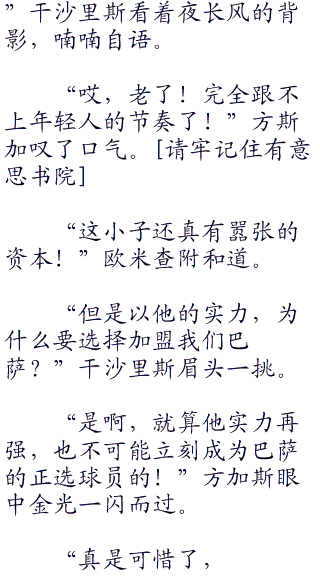 ”干沙里斯看着夜长风的背
影，喃喃自语。
“哎，老了！完全跟不
上年轻人的节奏了！”方斯
加叹了口气。[请牢记住有意
思书院]
“这小子还真有嚣张的
资本！”欧米查附和道。
“但是以他的实力，为
什么要选择加盟我们巴
萨？”干沙里斯眉头一挑。
“是啊，就算他实力再
强，也不可能立刻成为巴萨
的正选球员的！”方加斯眼
中金光一闪而过。
“真是可惜了，